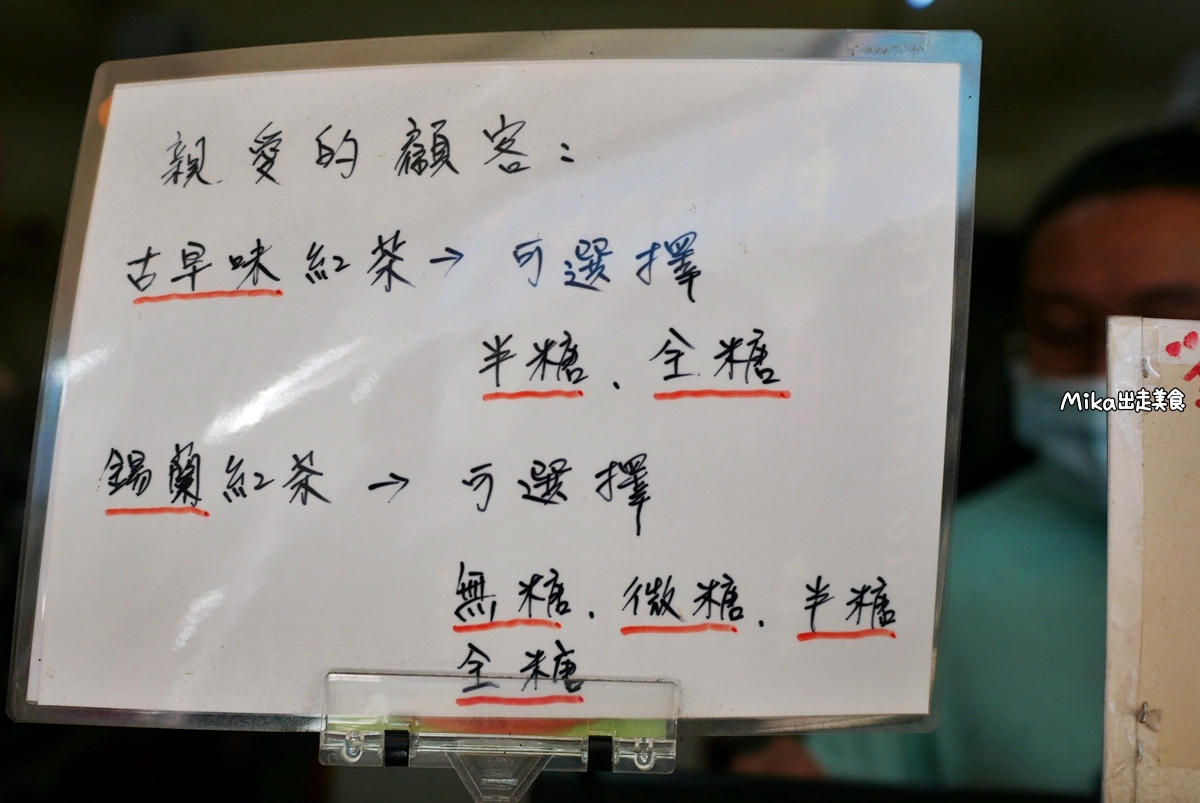 親愛的顧客：
古早味紅茶→可選擇
半糖、全糖
錫蘭紅茶→可選擇
無糖、微糖、半糖
全糖
Mika出走美食